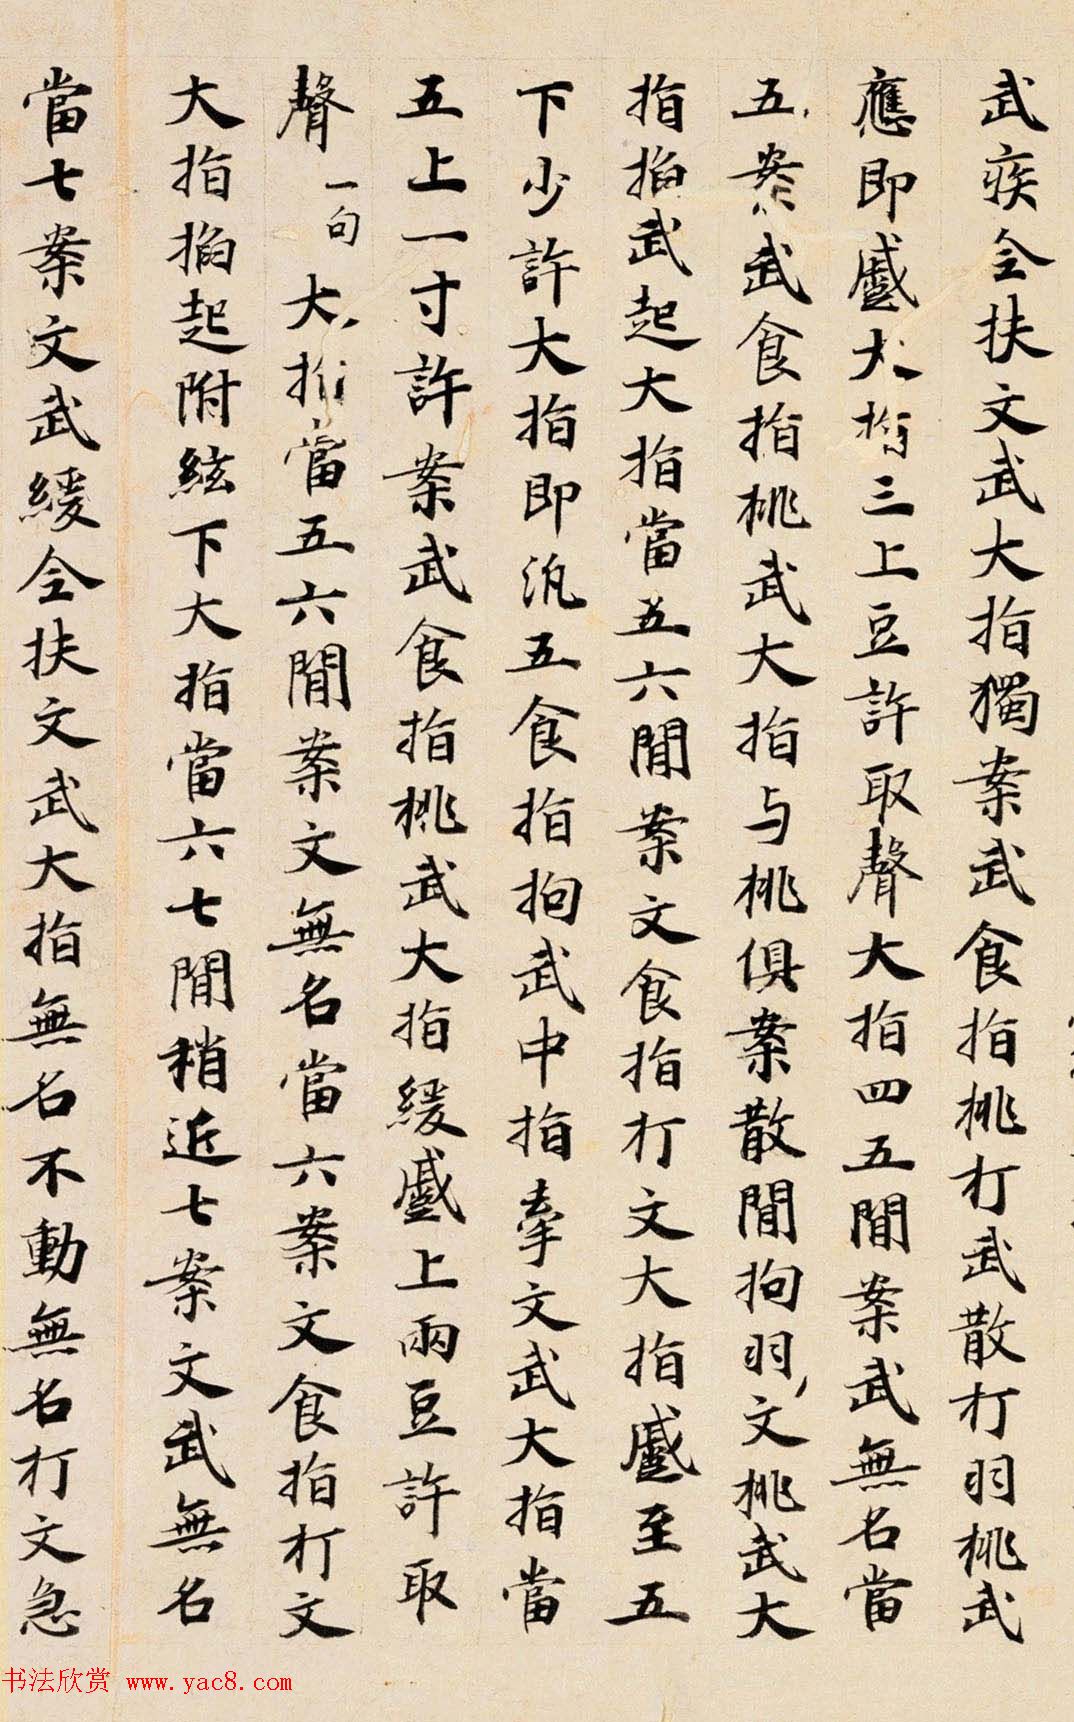 武疾全扶文武大指獨案武食指挑打武散打羽挑武
應即蹙大指三上豆許取聲大指四五間案武無名當
五案武食指挑武大指与挑俱案散間拘羽文挑武大
指掐武起大指當五六間案文食指打文大指蹙至五
下少許大指即汎五食指拘武中指牽文武大指當
五上一寸許案武食指挑武大指緩蹙上兩豆許取
聲一句大指當五六間案文無名當六案文食指打文
大指掐起附絃下大指當六七間稍近七案文武無名
當七案文武緩全扶文武大指無名不動無名打文急
书法欣赏 www.yac8.com